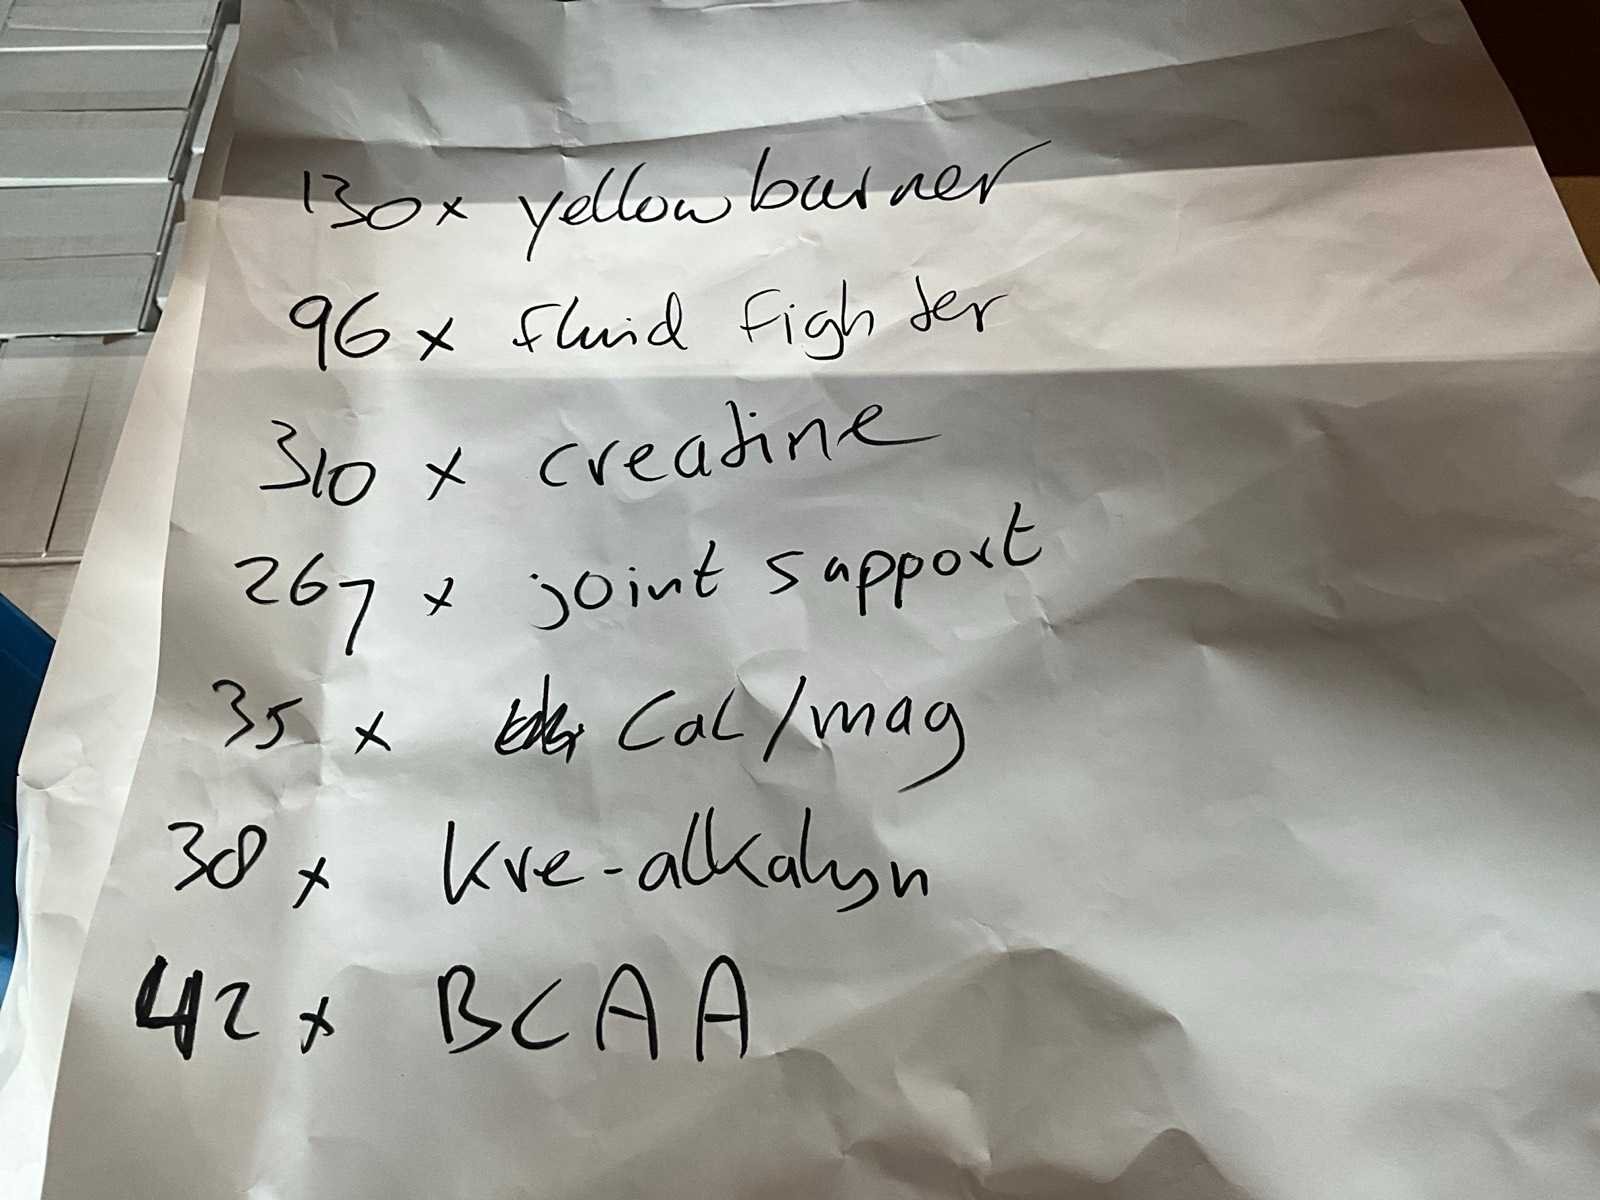 130 x yellow burner
96 x fluid fighter
310 x creatine
267 x joint support
35 x Cal/mag
38 x kre-alkalyn
42 x BCAA